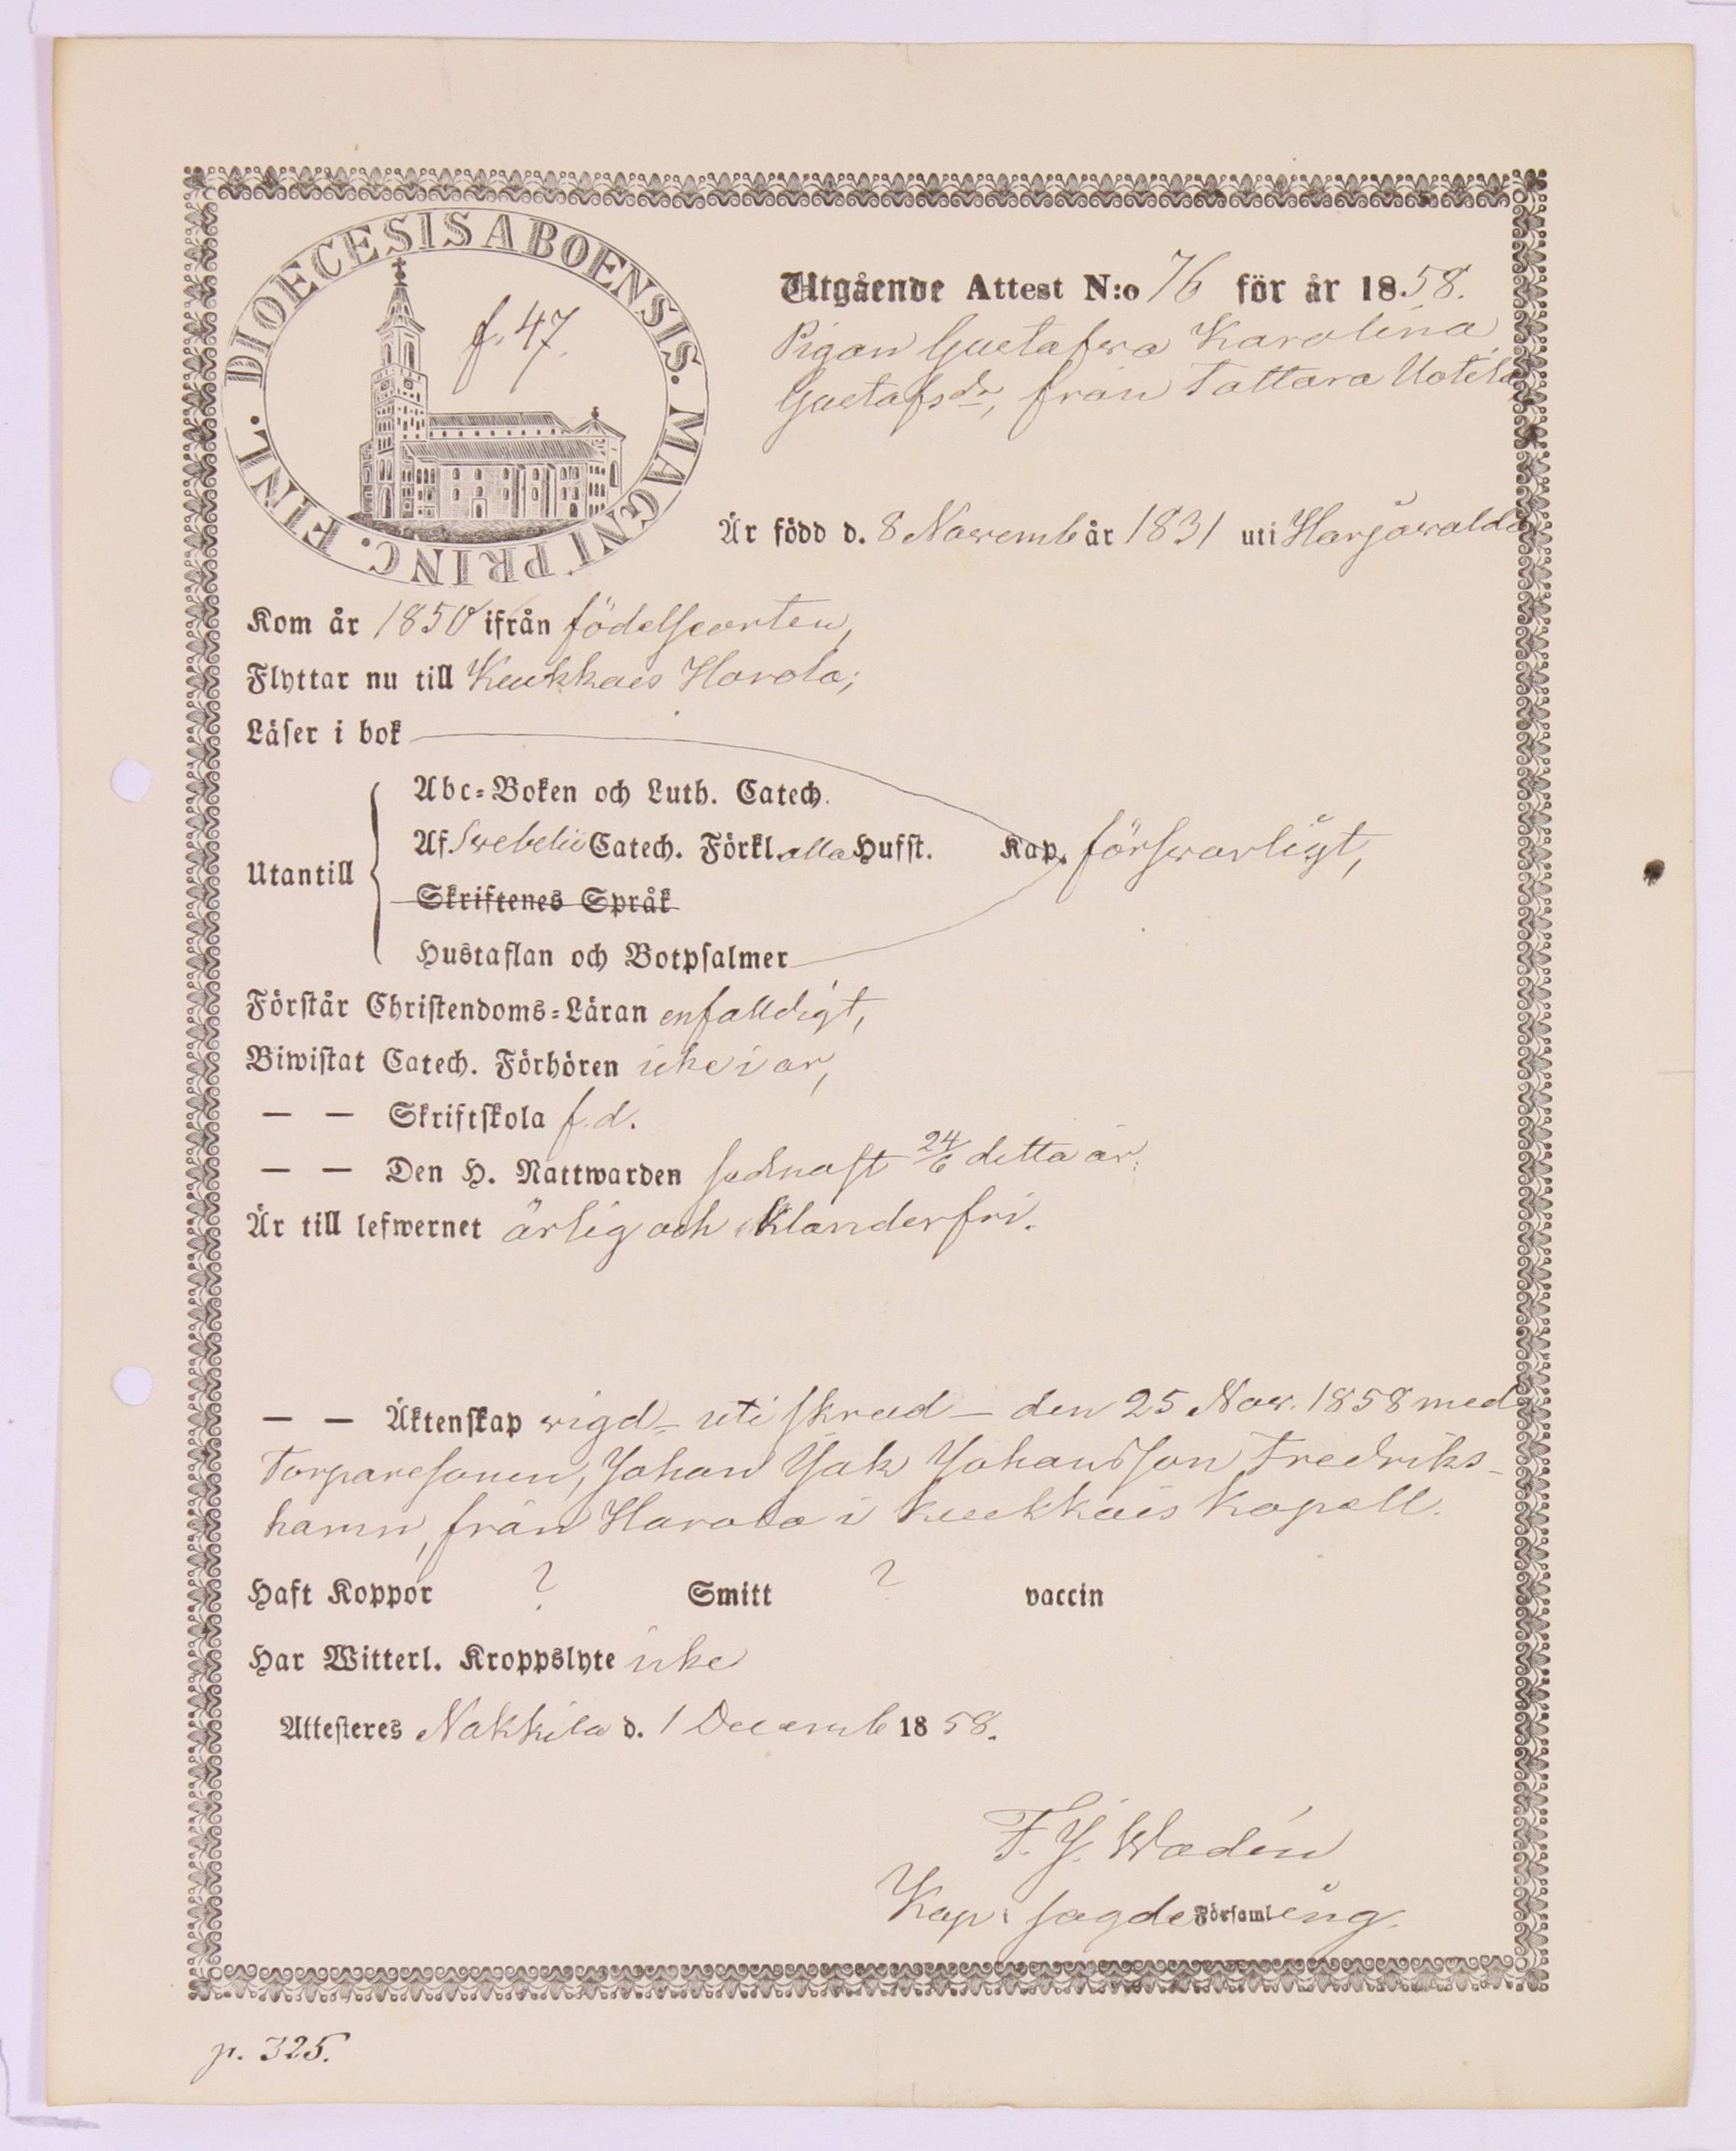 DIOECESIS ABOENSIS. MAGNI PRINC. FINL.
f. 47.
Utgående Attest N:o 76 för år 1858.
Pigan Gustafwa Karolina
Gustafsdr, från Tattara Uotila
Är född d. 8 Novemb år 1831 uti Harjawalda
Kom år 1850 ifrån födelseorten,
Flyttar nu till Keukkais Harola;
Läser i bok
Abc-Boken och Luth. Catech.
Utantill
Af Swebelii Catech. Förkl. alla Hufst. Kap. förswarligt,
Skriftenes Språk
Hustaflan och Botpsalmer
Förstår Christendoms-Läran enfalldigt,
Biwistat Catech. Förhören icke i år,
— — Skriftskola f.d.
— — Den H. Nattwarden sednast 24/6 detta år;
Är till lefwernet ärlig och klanderfri.
— — Äktenskap wigd – uti skrud – den 25 Nov. 1858 med
Torparesonen, Johan Isak Johansson Fredriks-
hamn, från Harola i Keukkais Kapell.
Haft Koppor ? Smitt ? vaccin
Har Witterl. Kroppslyte icke
Attesteres Nakkila d. 1 Decemb 1858.
F. J. Wadén
Kap. i sagde Församling.
p. 325.